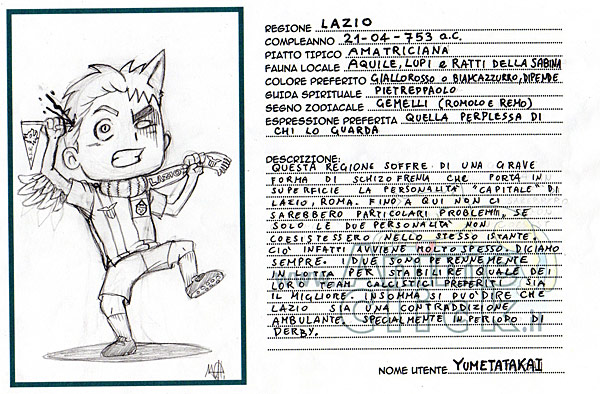 LAZIO
REGIONE LAZIO
COMPLEANNO 21-04-753 a.C.
PIATTO TIPICO AMATRICIANA
FAUNA LOCALE AQUILE, LUPI e RATTI DELLA SABINA
COLORE PREFERITO GIALLOROSSO o BIANCAZZURRO, DIPENDE
GUIDA SPIRITUALE PIETREPAOLO
SEGNO ZODIACALE GEMELLI (ROMOLO E REMO)
ESPRESSIONE PREFERITA QUELLA PERPLESSA DI
CHI LO GUARDA
DESCRIZIONE:
QUESTA REGIONE SOFFRE DI UNA GRAVE
FORMA DI SCHIZOFRENIA CHE PORTA IN
SUPERFICIE LA PERSONALITA' "CAPITALE" DI
LAZIO, ROMA. FINO A QUI NON CI
SAREBBERO PARTICOLARI PROBLEMI, SE
SOLO LE DUE PERSONALITÀ NON
COESISTESSERO NELLO STESSO ISTANTE.
CIO' INFATTI AVVIENE MOLTO SPESSO. DICIAMO
SEMPRE. I DUE SONO PERENNEMENTE
IN LOTTA PER STABILIRE QUALE DEI
LORO TEAM CALCISTICI PREFERITI SIA
IL MIGLIORE. INSOMMA SI PUO' DIRE CHE
LAZIO SIA UNA CONTRADDIZIONE
AMBULANTE. SPECIALMENTE IN PERIODO DI
DERBY.
NOME UTENTE YUMETATAKAI